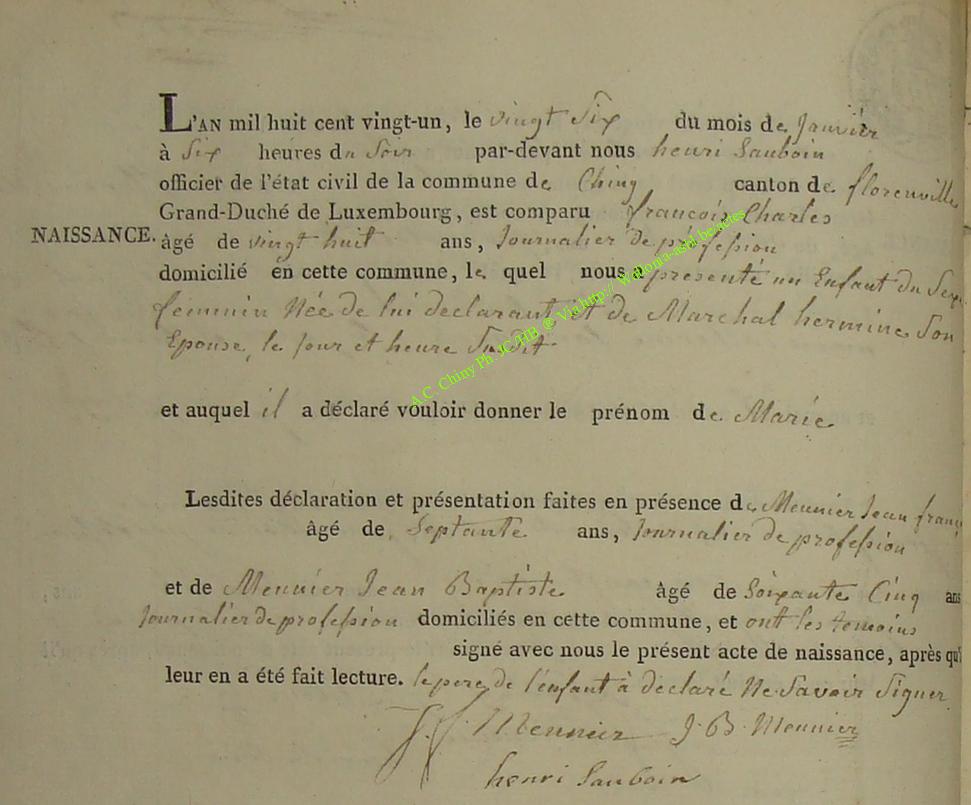 L'AN mil huit cent vingt-un, le vingt Six du mois de Janvier
à Six heures du Soir par-devant nous henri Sauboin
officier de l'état civil de la commune de Chiny canton de florenville
Grand-Duché de Luxembourg, est comparu francois Charles
NAISSANCE. âgé de vingt huit ans, Journalier de profession
domicilié en cette commune, le quel nous a presenté un Enfant du Sexe
feminin Née de lui declarant et de Marchal hermine Son
Epouse, le jour et heure Susdit
et auquel il a déclaré vouloir donner le prénom de Marie
Lesdites déclaration et présentation faites en présence de Meunier Jean franç
âgé de Septante ans, Journalier de profession
et de Meunier Jean Baptiste âgé de Soixante Cinq ans
Journalier de profession domiciliés en cette commune, et ont les temoins
signé avec nous le présent acte de naissance, après qu'il
leur en a été fait lecture. le pere de l'enfant à declaré Ne Savoir Signer
J f Meunier J. B. Meunier
henri Sauboin
A.C. Chiny Ph. JC/HB © Via http://Wallonia-asbl.be/actes